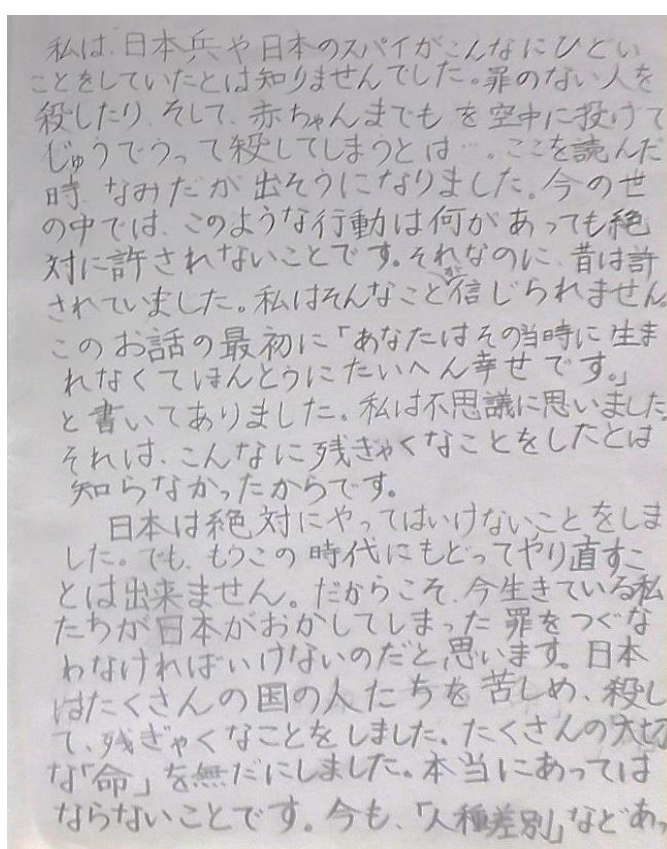 私は、日本兵や日本のスパイがこんなにひどい
ことをしていたとは知りませんでした。罪のない人を
殺したり、そして、赤ちゃんまでも を空中に投げて
じゅうでうって殺してしまうとは…。ここを読んだ
時、なみだが出そうになりました。今の世
の中では、このような行動は何があっても絶
対に許されないことです。それなのに、昔は許
されていました。私はそんなこと信じられません。
このお話の最初に「あなたはその当時に生ま
れなくてほんとうにたいへん幸せです。」
と書いてありました。私は不思議に思いました。
それは、こんなに残ぎゃくなことをしたとは
知らなかったからです。
日本は絶対にやってはいけないことをしま
した。でも、もうこの時代にもどってやり直すこ
とは出来ません。だからこそ、今生きている私
たちが日本がおかしてしまった罪をつぐな
わなければいけないのだと思います。日本
はたくさんの国の人たちを苦しめ、殺し
て、残ぎゃくなことをしました。たくさんの大切
な「命」を無だにしました。本当にあっては
ならないことです。今も、「人種差別」などあっ